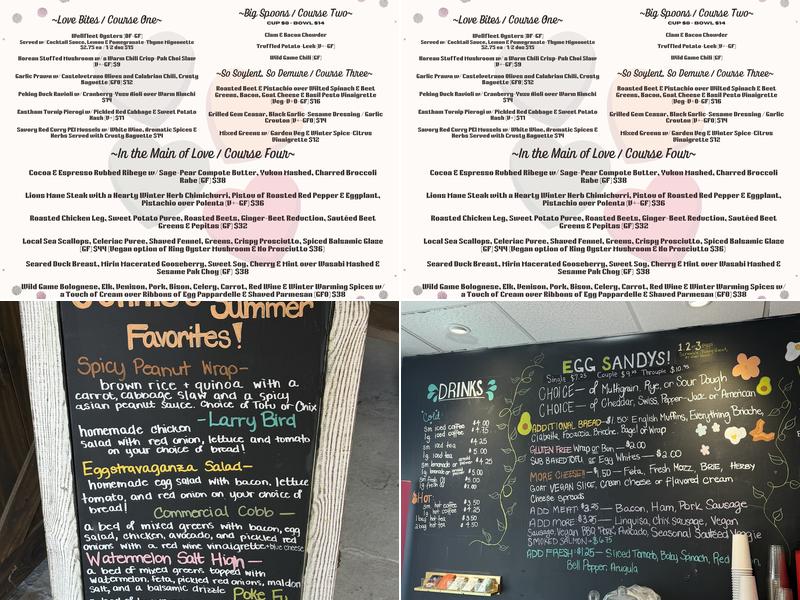 ~Love Bites / Course One~
Wellfleet Oysters (DF-GF)
Served w/ Cocktail Sauce, Lemon & Pomegranate-Thyme Mignonette
$2.75 ea / 1/2 doz $15
Korean Stuffed Mushroom w/ a Warm Chili Crisp-Pak Choi Slaw
(V+-GF) $9
Garlic Prawn w/ Castelvetrano Olives and Calabrian Chili, Crusty
Baguette (GFO) $12
Peking Duck Ravioli w/ Cranberry-Yuzu Aioli over Warm Kimchi
$14
Eastham Turnip Pierogi w/ Pickled Red Cabbage & Sweet Potato
Hash (V+) $11
Savory Red Curry PEI Mussels w/ White Wine, Aromatic Spices &
Herbs Served with Crusty Baguette $14
~Big Spoons / Course Two~
CUP $8 - BOWL $14
Clam & Bacon Chowder
Truffled Potato-Leek (V+-GF)
Wild Game Chili (GF)
~So Soylent, So Demure / Course Three~
Roasted Beet & Pistachio over Wilted Spinach & Beet
Greens, Bacon, Goat Cheese & Basil Pesto Vinaigrette
(Veg-V-O-GF) $16
Grilled Gem Caesar, Black Garlic-Sesame Dressing / Garlic
Crouton (V+-GFO) $14
Mixed Greens w/ Garden Veg & Winter Spice-Citrus
Vinaigrette $12
~In the Main of Love / Course Four~
Cocoa & Espresso Rubbed Ribeye w/ Sage-Pear Compote Butter, Yukon Mashed, Charred Broccoli
Rabe (GF) $38
Lions Mane Steak with a Hearty Winter Herb Chimichurri, Pistou of Roasted Red Pepper & Eggplant,
Pistachio over Polenta (V+-GF) $36
Roasted Chicken Leg, Sweet Potato Puree, Roasted Beets, Ginger-Beet Reduction, Sautéed Beet
Greens & Pepitas (GF) $32
Local Sea Scallops, Celeriac Puree, Shaved Fennel, Greens, Crispy Prosciutto, Spiced Balsamic Glaze
(GF) $44 (Vegan option of King Oyster Mushroom & No Prosciutto $36)
Seared Duck Breast, Mirin Macerated Gooseberry, Sweet Soy, Cherry & Mint over Wasabi Mashed &
Sesame Pak Choy (GF) $38
Wild Game Bolognese, Elk, Venison, Pork, Bison, Celery, Carrot, Red Wine & Winter Warming Spices w/
a Touch of Cream over Ribbons of Egg Pappardelle & Shaved Parmesan (GFO) $38
~Love Bites / Course One~
Wellfleet Oysters (DF-GF)
Served w/ Cocktail Sauce, Lemon & Pomegranate-Thyme Mignonette
$2.75 ea / 1/2 doz $15
Korean Stuffed Mushroom w/ a Warm Chili Crisp-Pak Choi Slaw
(V+-GF) $9
Garlic Prawn w/ Castelvetrano Olives and Calabrian Chili, Crusty
Baguette (GFO) $12
Peking Duck Ravioli w/ Cranberry-Yuzu Aioli over Warm Kimchi
$14
Eastham Turnip Pierogi w/ Pickled Red Cabbage & Sweet Potato
Hash (V+) $11
Savory Red Curry PEI Mussels w/ White Wine, Aromatic Spices &
Herbs Served with Crusty Baguette $14
~Big Spoons / Course Two~
CUP $8 - BOWL $14
Clam & Bacon Chowder
Truffled Potato-Leek (V+-GF)
Wild Game Chili (GF)
~So Soylent, So Demure / Course Three~
Roasted Beet & Pistachio over Wilted Spinach & Beet
Greens, Bacon, Goat Cheese & Basil Pesto Vinaigrette
(Veg-V-O-GF) $16
Grilled Gem Caesar, Black Garlic-Sesame Dressing / Garlic
Crouton (V+-GFO) $14
Mixed Greens w/ Garden Veg & Winter Spice-Citrus
Vinaigrette $12
~In the Main of Love / Course Four~
Cocoa & Espresso Rubbed Ribeye w/ Sage-Pear Compote Butter, Yukon Mashed, Charred Broccoli
Rabe (GF) $38
Lions Mane Steak with a Hearty Winter Herb Chimichurri, Pistou of Roasted Red Pepper & Eggplant,
Pistachio over Polenta (V+-GF) $36
Roasted Chicken Leg, Sweet Potato Puree, Roasted Beets, Ginger-Beet Reduction, Sautéed Beet
Greens & Pepitas (GF) $32
Local Sea Scallops, Celeriac Puree, Shaved Fennel, Greens, Crispy Prosciutto, Spiced Balsamic Glaze
(GF) $44 (Vegan option of King Oyster Mushroom & No Prosciutto $36)
Seared Duck Breast, Mirin Macerated Gooseberry, Sweet Soy, Cherry & Mint over Wasabi Mashed &
Sesame Pak Choy (GF) $38
Wild Game Bolognese, Elk, Venison, Pork, Bison, Celery, Carrot, Red Wine & Winter Warming Spices w/
a Touch of Cream over Ribbons of Egg Pappardelle & Shaved Parmesan (GFO) $38
Summer
Favorites!
Spicy Peanut Wrap-
brown rice + quinoa with a
carrot, cabbage slaw and a spicy
asian peanut sauce. choice of Tofu or Chix
-Larry Bird
homemade chicken
salad with red onion, lettuce and tomato
on your choice of bread!
Eggstravaganza Salad-
homemade egg salad with bacon, lettuce
tomato, and red onion on your choice of
bread!
Commercial Cobb-
a bed of mixed greens with bacon, egg
salad, chicken, avocado, and pickled red
onions with a red wine vinaigrette+blue cheese
Watermelon Salt High-
a bed of mixed greens topped with
watermelon, feta, pickled red onions, maldon
salt, and a balsamic drizzle
Poke
DRINKS
Cold
sm iced coffee $4.00
lg iced coffee $4.75
sm iced tea $4.25
lg iced tea
sm lemonade
lg lemonade
Hot
sm hot coffee $3.50
lg hot coffee
1 bag hot tea $3.50
2 bag hot tea $4.50
EGG SANDYS!
1-2-3 eggs
Single $7.25 Couple Throuple
CHOICE- of Multigrain, Rye, or Sour Dough
CHOICE- of Cheddar, Swiss, Pepper-Jack or American
ADDITIONAL BREAD-$1.50: English Muffins, Everything Brioche,
Ciabatta, Focaccia, Brioche, Bagel or Wrap
GLUTEN FREE Wrap or Bun- $2.00
SUB BAKED TOFU or Egg Whites- $2.00
MORE CHEESE!!-$1.50-Feta, Fresh Mozz, Brie, Herby
Goat, Vegan Slice, Cream cheese or flavored cream
cheese spreads
ADD MEAT $3.25- Bacon, Ham, Pork Sausage
ADD MORE $3.25- Linguica, Chix sausage, Vegan
Sausage, Vegan BBQ "Pork", Avocado, Seasonal Sautéed Veggie
SMOKED SALMON-$6.75
ADD FRESH $1.25- Sliced Tomato, Baby Spinach, Red
Bell Pepper, Arugula